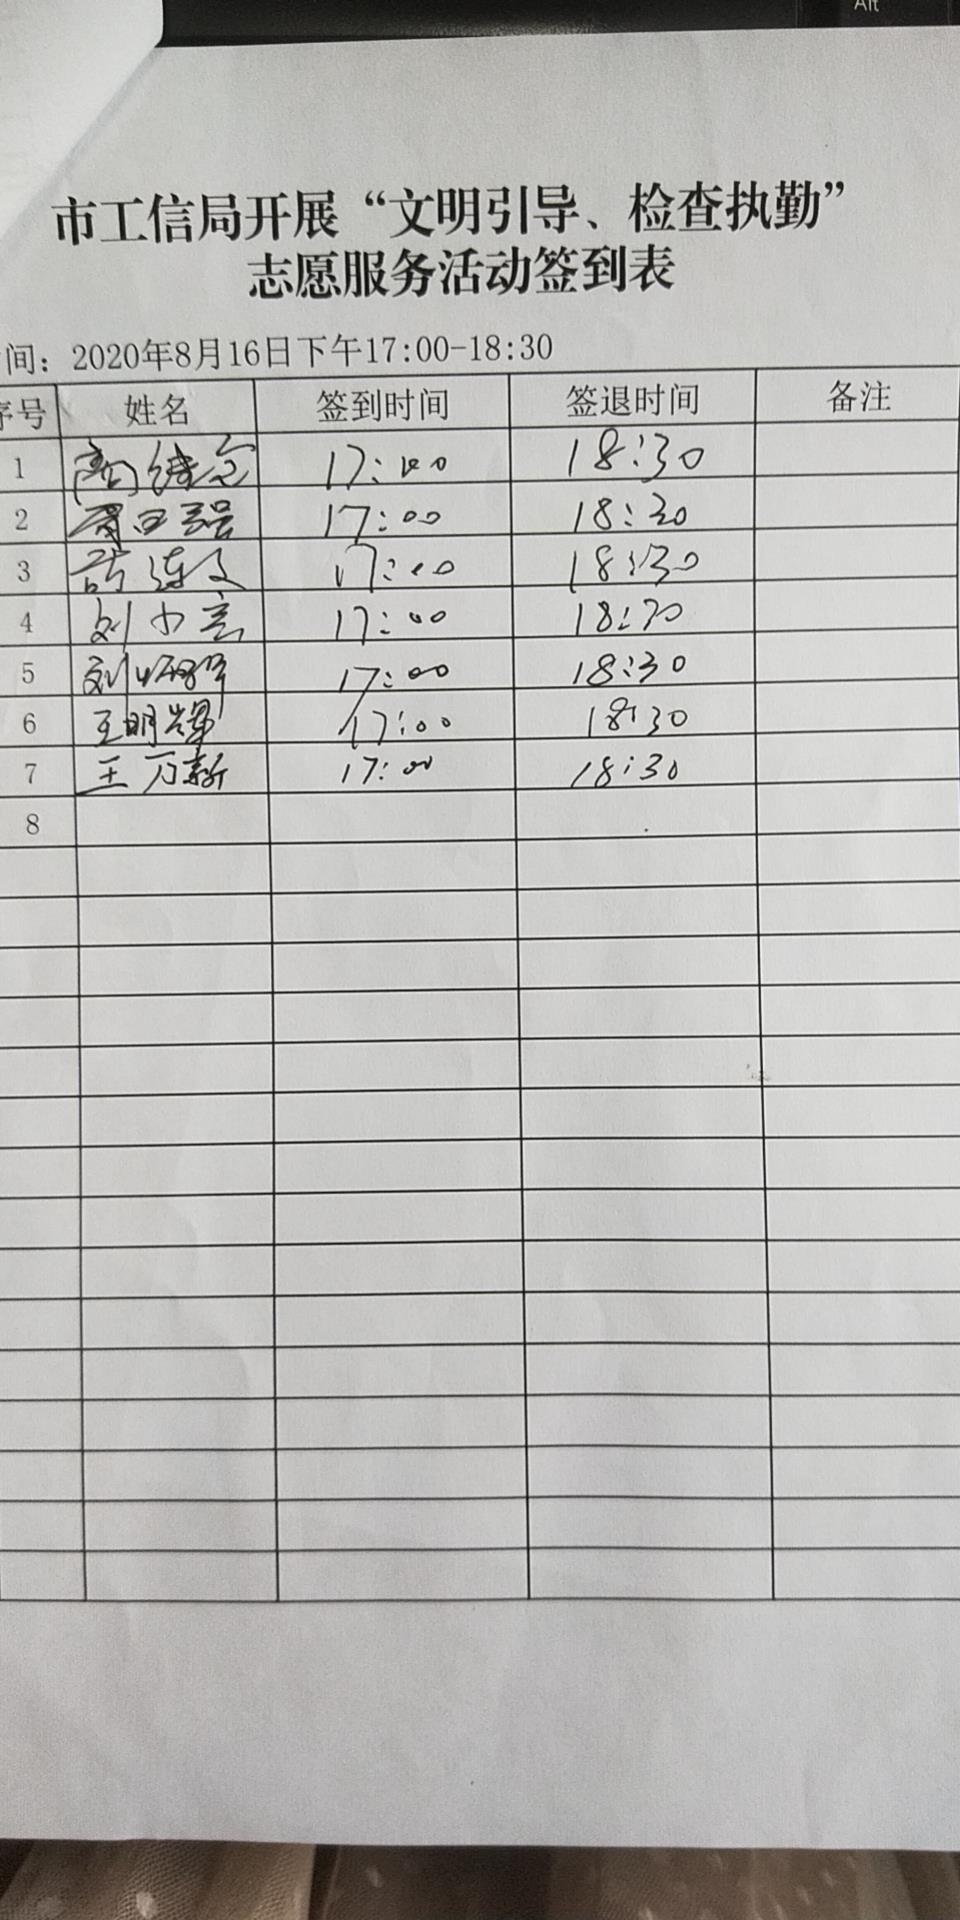 Alt
市工信局开展“文明引导、检查执勤”
志愿服务活动签到表
间：2020年8月16日下午17:00-18:30
序号 姓名 签到时间 签退时间 备注
1 17:00 18:30
2 17:00 18:30
3 17:00 18:30
4 刘 17:00 18:30
5 刘 17:00 18:30
6 王明辉 17:00 18:30
7 王万新 17:00 18:30
8